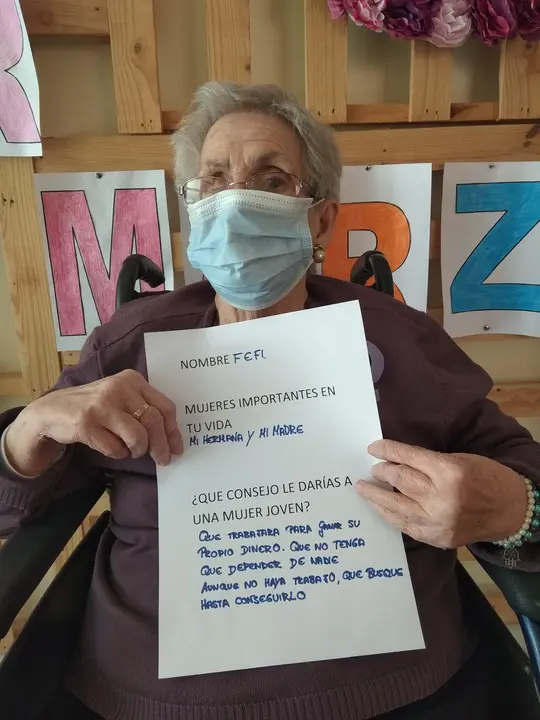 M
R
Z
NOMBRE FEFI.
MUJERES IMPORTANTES EN
TU VIDA
MI HERMANA Y MI MADRE
¿QUE CONSEJO LE DARÍAS A
UNA MUJER JOVEN?
QUE TRABAJARA PARA GANAR SU
PROPIO DINERO. QUE NO TENGA
QUE DEPENDER DE NADIE
AUNQUE NO HAYA TRABAJO, QUE BUSQUE
HASTA CONSEGUIRLO